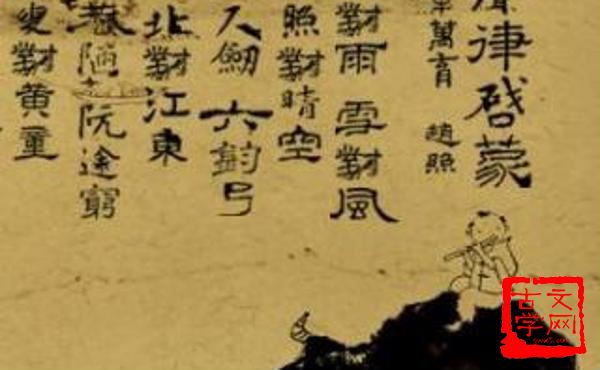 律啓蒙
萬育 趙照
對雨 雪對風
照對晴空
尺劒 六鈞弓
北對江東
巷陋 阮途窮
叟對黃童
古文
学网